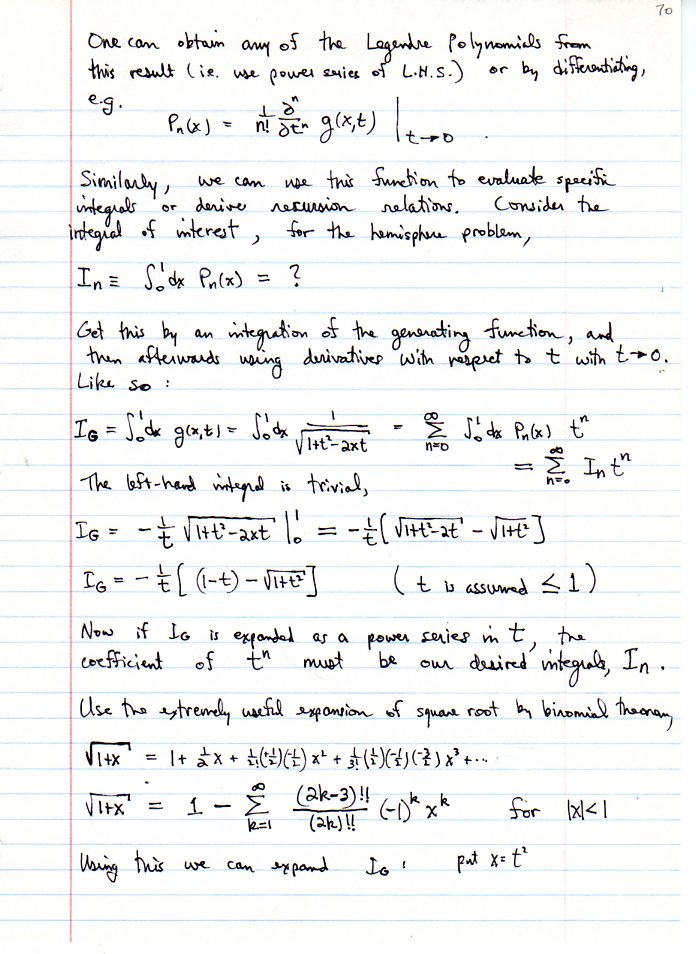 70
One can obtain any of the Legendre Polynomials from
this result (ie. use power series of L.H.S.) or by differentiating,
e.g.
Pₙ(x) = 1/n! ∂ⁿ/∂tⁿ g(x,t) |ₜ→₀ .
Similarly, we can use this function to evaluate specific
integrals or derive recursion relations. Consider the
integral of interest, for the hemisphere problem,
Iₙ ≡ ∫₀¹ dx Pₙ(x) = ?
Get this by an integration of the generating function, and
then afterwards using derivatives with respect to t with t→0.
Like so :
I_G = ∫₀¹ dx g(x,t) = ∫₀¹ dx 1/√(1+t²-2xt) = Σₙ₌₀^∞ ∫₀¹ dx Pₙ(x) tⁿ
= Σₙ₌₀^∞ Iₙ tⁿ
The left-hand integral is trivial,
I_G = -1/t √(1+t²-2xt) |₀¹ = -1/t [√(1+t²-2t) - √(1+t²)]
I_G = -1/t [(1-t) - √(1+t²)] ( t is assumed ≤ 1 )
Now if I_G is expanded as a power series in t, the
coefficient of tⁿ must be our desired integrals, Iₙ .
Use the extremely useful expansion of square root by binomial theorem,
√(1+x) = 1 + 1/2 x + 1/2! (+1/2)(-1/2) x² + 1/3! (1/2)(-1/2)(-3/2) x³ + ...
√(1+x) = 1 - Σₖ₌₁^∞ (2k-3)!!/(2k)!! (-1)ᵏ xᵏ for |x|<1
Using this we can expand I_G : put x = t²